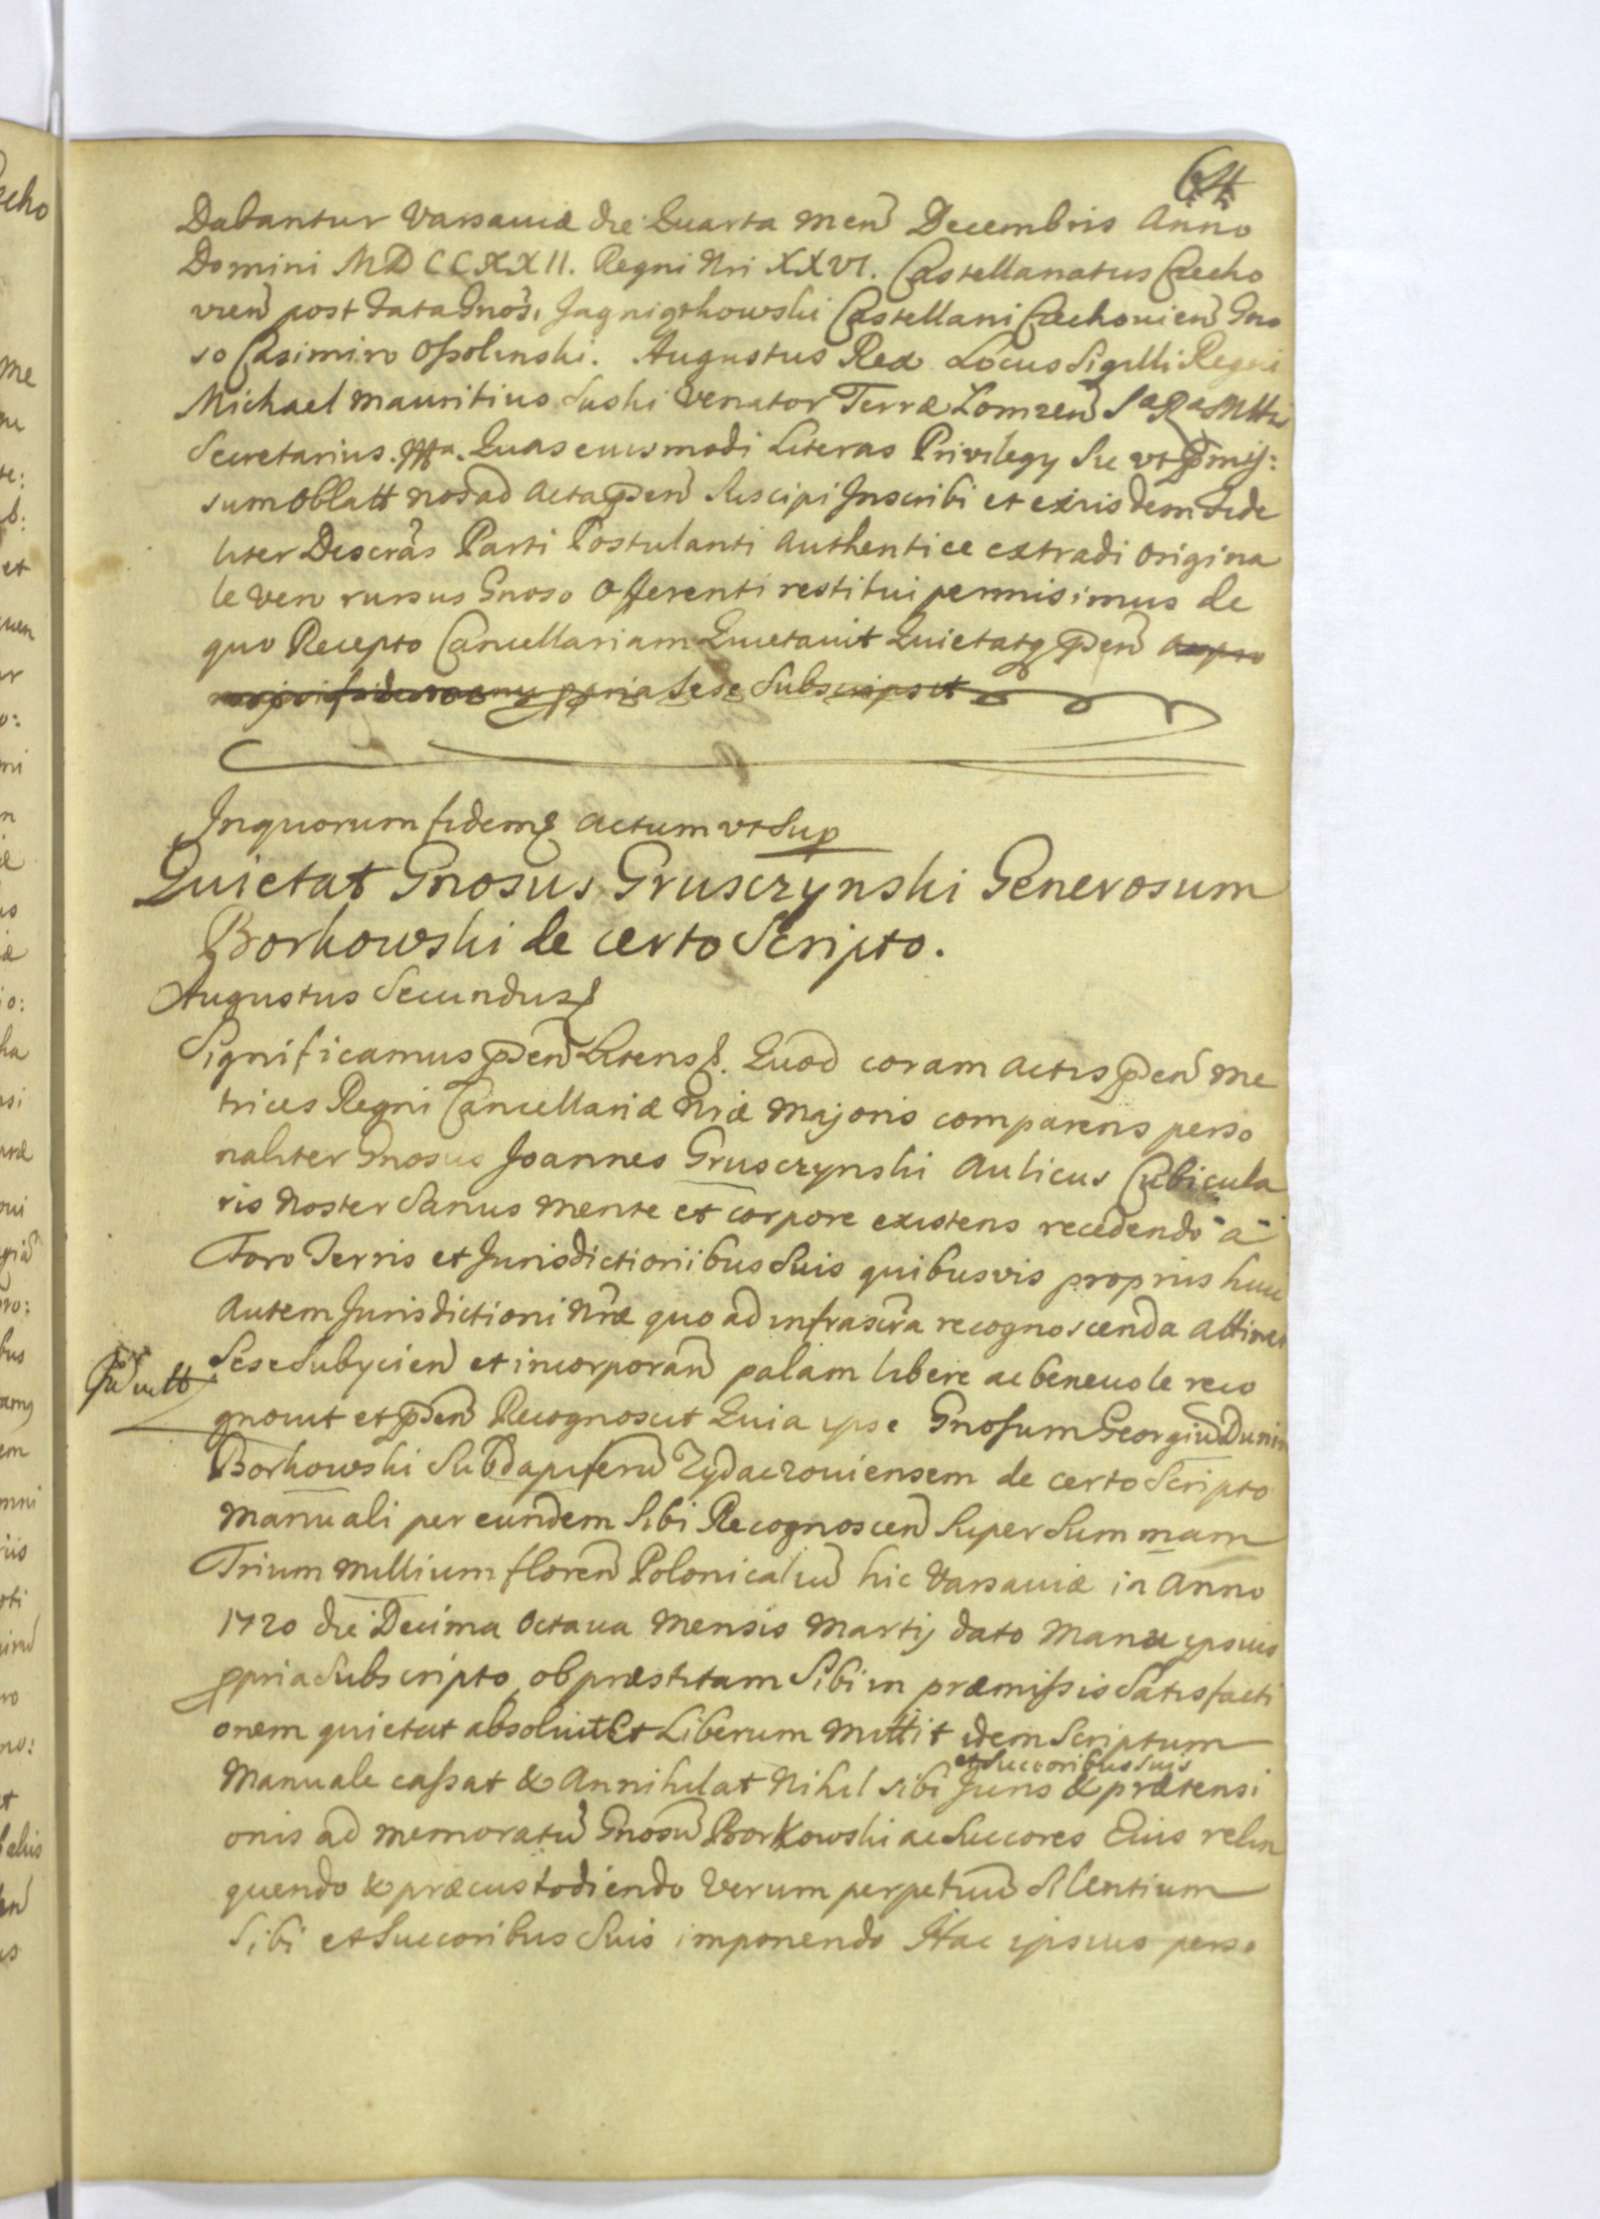 64
Dabantur Varsaviæ die Quarta Men̄ Decembris Anno
Domini MDCCXXII. Regni Nri XXVI. Castellanatus Czecho
vien̄ post data Gnosi Jagnigthowski Castellani Czechovien̄ Gno
so Casimiro Ossolinski. Augustus Rex Locus Sigilli Regni
Michael Mauritius Suski Venator Terræ Lomzen̄ S R Mttis
Secretarius. Quas eiusmodi Literas Privilegy Sic vt pmis:
sum Oblatt nos ad Acta pñ Suscipi Inscribi et ex iisdem fide
liter Descrās Parti Postulanti Authentice extradi origina
le vero rursus Gnoso Offerenti restitui permisimus de
quo Recepto Cancellariam Quietavit Quietatq pñ
sese Subscripsit
In quorum fidem Actum vt Sup
Quietat Gnosus Grusczynski Generosum
Borkowski de certo Scripto.
Augustus Secundus
Significamus pñ Literis. Quod coram Actis pñ Me
trices Regni Cancellariæ Nræ Majoris comparens perso
naliter Gnosus Joannes Grusczynski Aulicus Cubicula
ris Noster Sanus mente et corpore existens recedendo à
Foro Terris et Jurisdictioniibus Suis quibusvis proprus huic
Autem Jurisdictioni Nræ quo ad infrascrā recognoscenda attinet
Sese Subycien̄ et incorporan̄ palam libere ac benevole reco
gnovit et pñ Recognoscit Quia ipse Gnosum Georgiū Dunin
Borkowski Subdapiferū Zydaczoviensem de certo Scripto
Manuali per eundem Sibi Recognoscen̄ Super Summam
Trium Millium floren̄ Polonicaliū hic Varsaviæ in Anno
1720 die Decima Octava Mensis Martij dato Manu ipsius
ppria Subscripto, ob præstitam Sibi in præmissis Satisfacti
onem quietat absolvit Et Liberum Mittit idem Scriptum
et Succoribus suis
Manuale cassat & Annihilat Nihil sibi Juris & prætensi
onis ad memoratū Gnosū Borkowski ac Succores Eius relin
quendo & præcustodiendo Verum perpetuū Silentium
Sibi et Succoribus Suis imponendo Hac ipsius perso